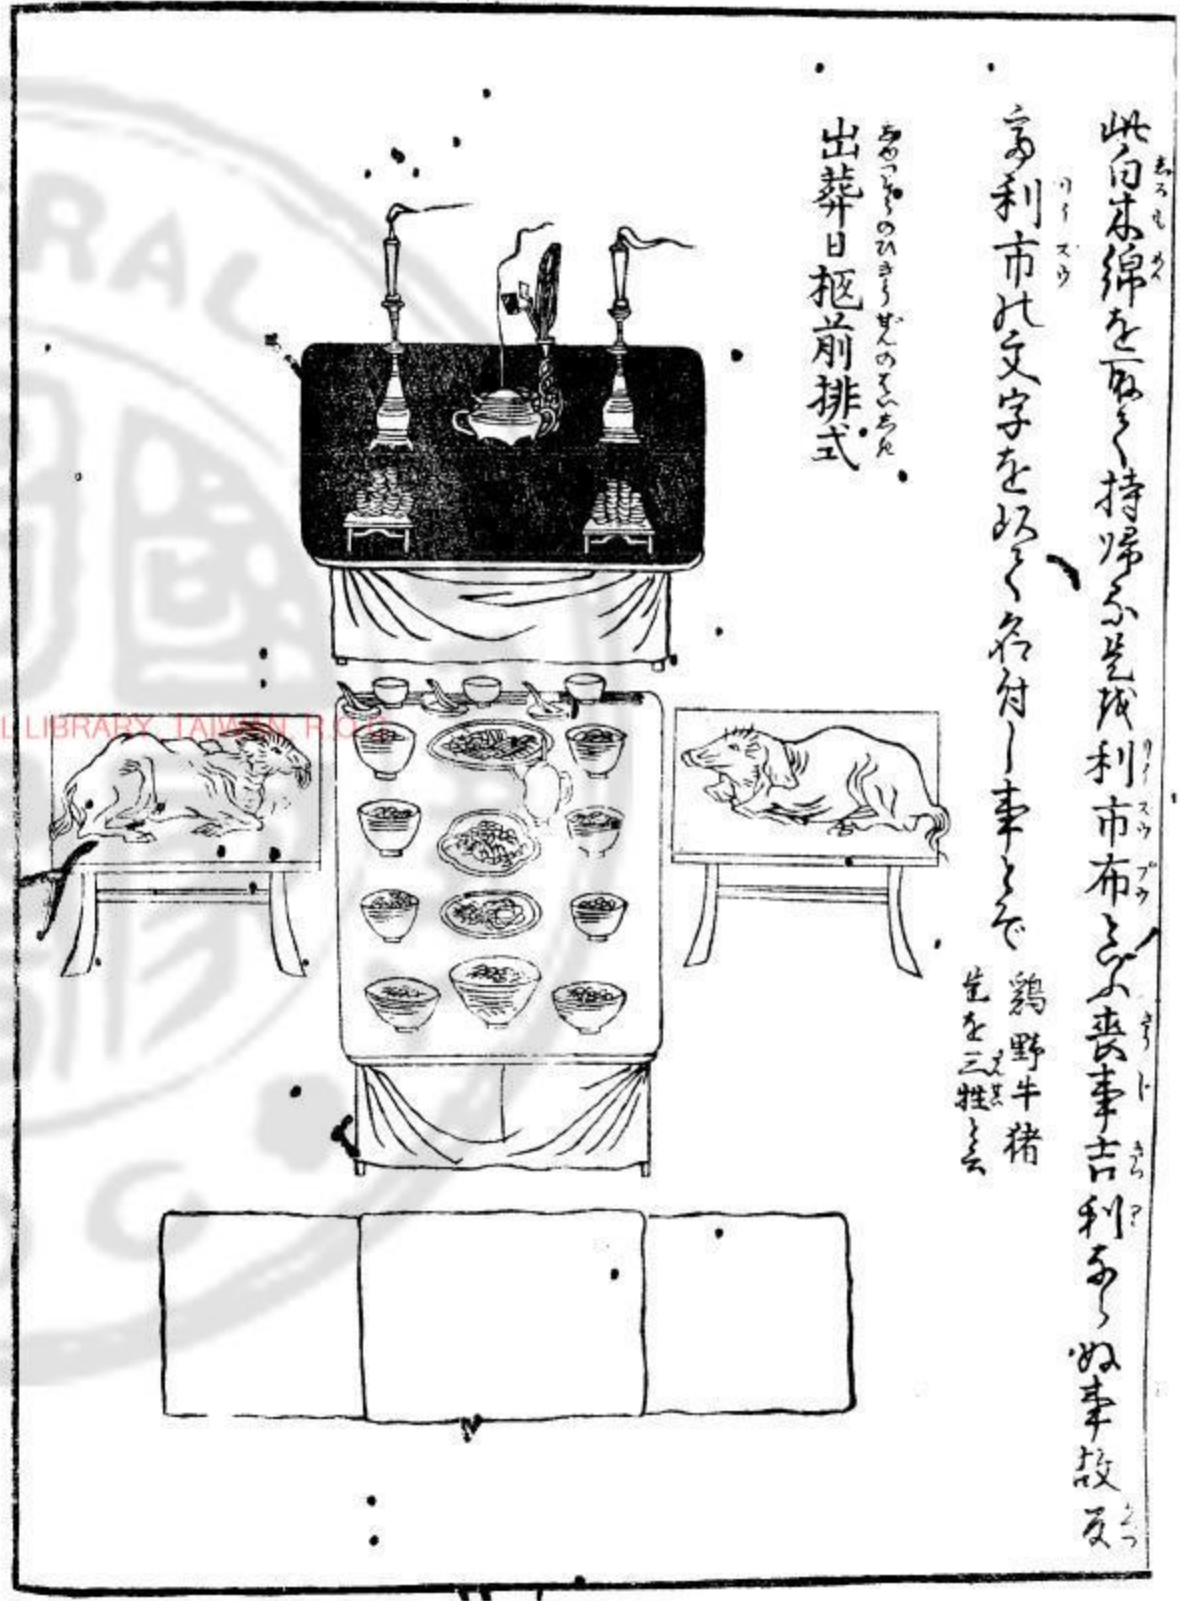 此白木綿を取て持帰る是を利市布といふ喪事吉利ならぬ事故反
て利市の文字を以て名付し事とぞ
鶏野牛猪
是を三牲と云
出葬日柩前排式
RAL
L LIBRARY, TAIWAN, R.O.C